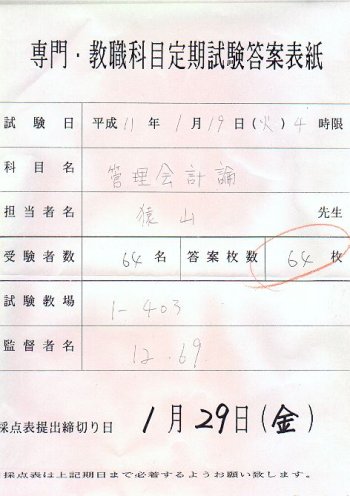 専門・教職科目定期試験答案表紙
試験日 平成 11 年 1 月 19 日 (火) 4 時限
科目名 管理会計論
担当者名 猿山 先生
受験者数 64 名 答案枚数 64 枚
試験教場 1-403
監督者名 12.69
採点表提出締切り日 1月29日(金)
採点表は上記期日まで必着するようお願い致します。